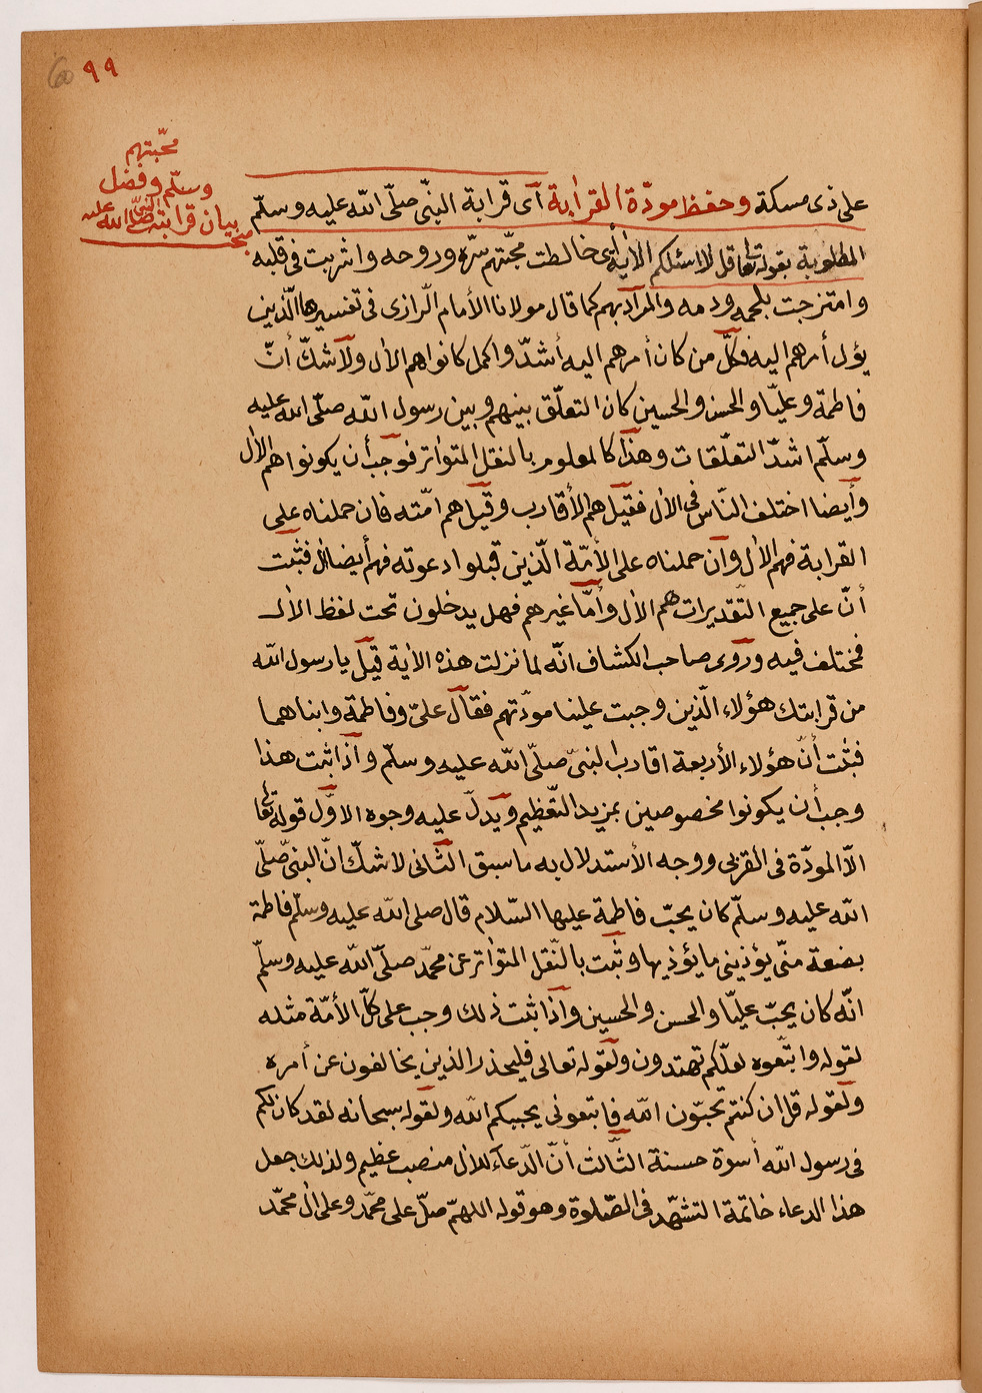 ٩٩
60
محبّتهم
وسلّم وفضل
بيان قرابته صلّى الله عليه
مبحث
على ذى مسكة وحفظ مودّة القرابة آى قرابة النبّى صلّى الله عليه وسلّم
المطلوبة بقوله تعا قل لا اسئلكم الأية أى خالطت محبّتهم سرّه وروحه واشربت فى قلبه
وامتزجت بلحمه ودمه والمرآد بهم كما قال مولانا الأمام الرازى فى تفسيرها الّذين
يؤل أمرهم اليه فكلّ من كان أمرهم اليه أشدّ واكمل كانوا هم الأل ولا شكّ أنّ
فاطمة وعليّا والحسن والحسين كان التعلّق بينهم وبين رسول الله صلّى الله عليه
وسلّم اشدّ التعلّقات وهذا كالمعلوم بالنقل المتواتر فوجب أن يكونوا هم الأل
وأيضا اختلف النّاس فى الأل فقيل هم الأقارب وقيل هم امّته فان حملناه على
القرابة فهم الأل وان حملناه على الأمّة الّذين قبلوا دعوته فهم أيضا ال فثبت
أنّ على جميع التّقديرات هم الأل وأمّا غيرهم فهل يدخلون تحت لفظ الأل
فمختلف فيه وروى صاحب الكشاف انّه لما نزلت هذه الأية قيل يا رسول الله
من قرابتك هؤلاء الّذين وجبت علينا مودّتهم فقال علىّ وفاطمة وابناهما
فبثت أنّ هؤلاء الأربعة اقارب لنبىّ صلّى الله عليه وسلّم واذا ثبت هذا
وجب أن يكونوا مخصوصين بمزيد التّعظيم ويدلّ عليه وجوه الاوّل قوله تعا
الّا المودّة فى القربى ووجه الأستدلال به ما سبق الثّانى لا شكّ انّ النبىّ صلّى
الله عليه وسلّم كان يحبّ فاطمة عليها السّلام قال صلى الله عليه وسلّم فاطمة
بضعة منّى يؤذينى ما يؤذيها وثبت بالنّقل المتواتر عن محمّد صلّى الله عليه وسلّم
انّه كان يحبّ عليّا والحسن والحسين واذا ثبت ذلك وجب على كلّ الأمّة مثله
لقوله واتّبعوه لعلّكم تهتدون ولقوله تعالى فليحذر الذين يخالفون عن أمره
ولقوله قل ان كنتم تحبّون الله فاتبعونى يحببكم الله ولقوله سبحانه لقد كان لكم
فى رسول الله أسوة حسنة الثّالث أنّ الدّعآء للأل منصب عظيم ولذلك جعل
هذا الدعاء خاتمة التشهّد فى الصّلوة وهو قوله اللهمّ صلّ على محمّد وعلى ال محمّد